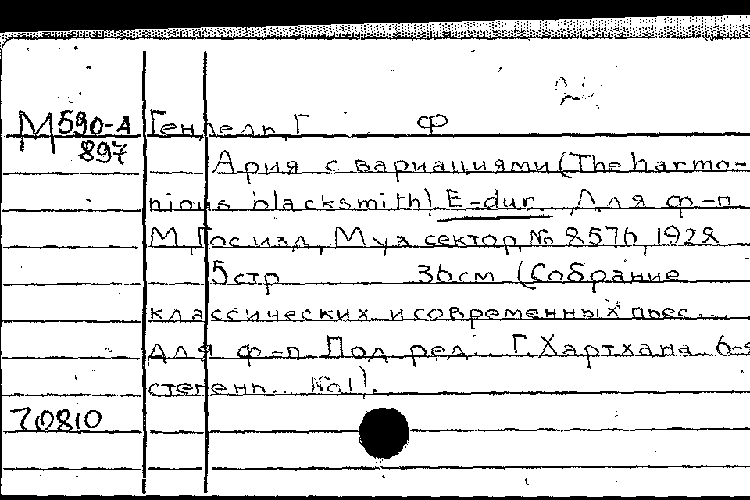 М 590-А Гендель, Г. Ф
897
Ария с вариациями (The harmo-
nious blacksmith) E=dur. Для ф-п.
М, Гос изд, Муз сектор, № 8576, 1928
5 стр 36 см (Собрание
классических и современных пьес...
для ф-п. Под ред. Г. Хартхана. 6-я
степень. №1).
70810